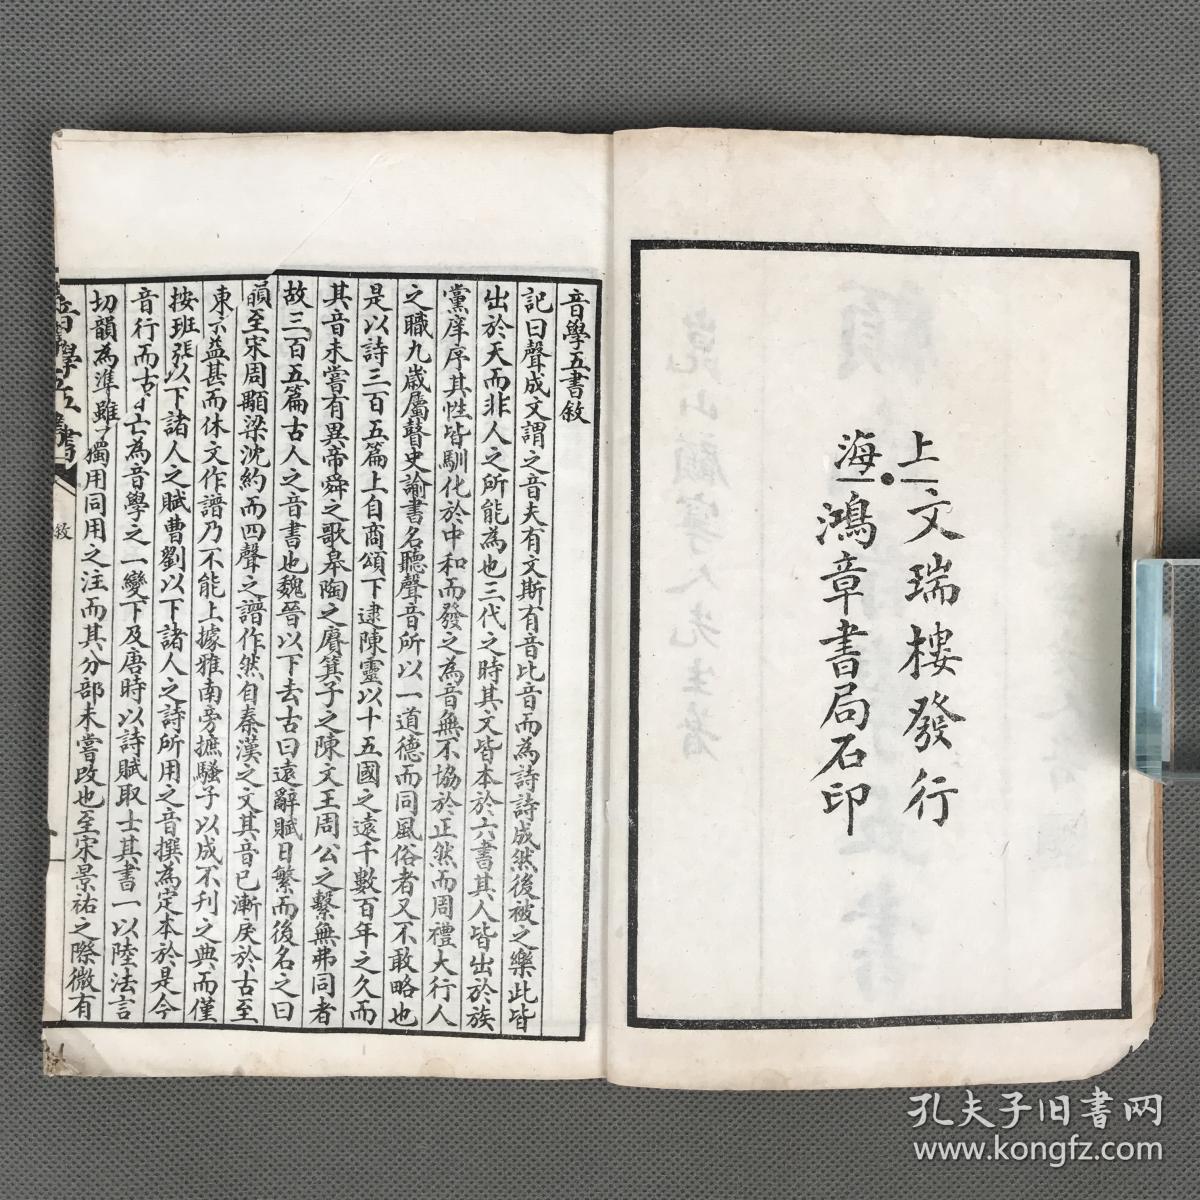 上海
文瑞樓發行
鴻章書局石印
音學五書敘
記曰聲成文謂之音夫有文斯有音比音而為詩詩成然後被之樂此皆
出於天而非人之所能為也三代之時其文皆本於六書其人皆出於族
黨庠序其性皆馴化於中和而發之為音無不協於正然而周禮大行人
之職九歲屬瞽史諭書名聽聲音所以一道德而同風俗者又不敢略也
是以詩三百五篇上自商頌下逮陳靈以十五國之遠千數百年之久而
其音未嘗有異帝舜之歌皋陶之賡箕子之陳文王周公之繫無弗同者
故三百五篇古人之音書也魏晉以下去古日遠辭賦日繁而後名之曰
韻至宋周顒梁沈約而四聲之譜作然自秦漢之文其音已漸戾於古至
東京益甚而休文作譜乃不能上據雅南旁摭騷子以成不刊之典而僅
按班張以下諸人之賦曹劉以下諸人之詩所用之音撰為定本於是今
音行而古音亡為音學之一變下及唐時以詩賦取士其書一以陸法言
切韻為準雖有獨用同用之注而其分部未嘗改也至宋景祐之際微有
音學五書
敘
孔夫子旧書网
www.kongfz.com